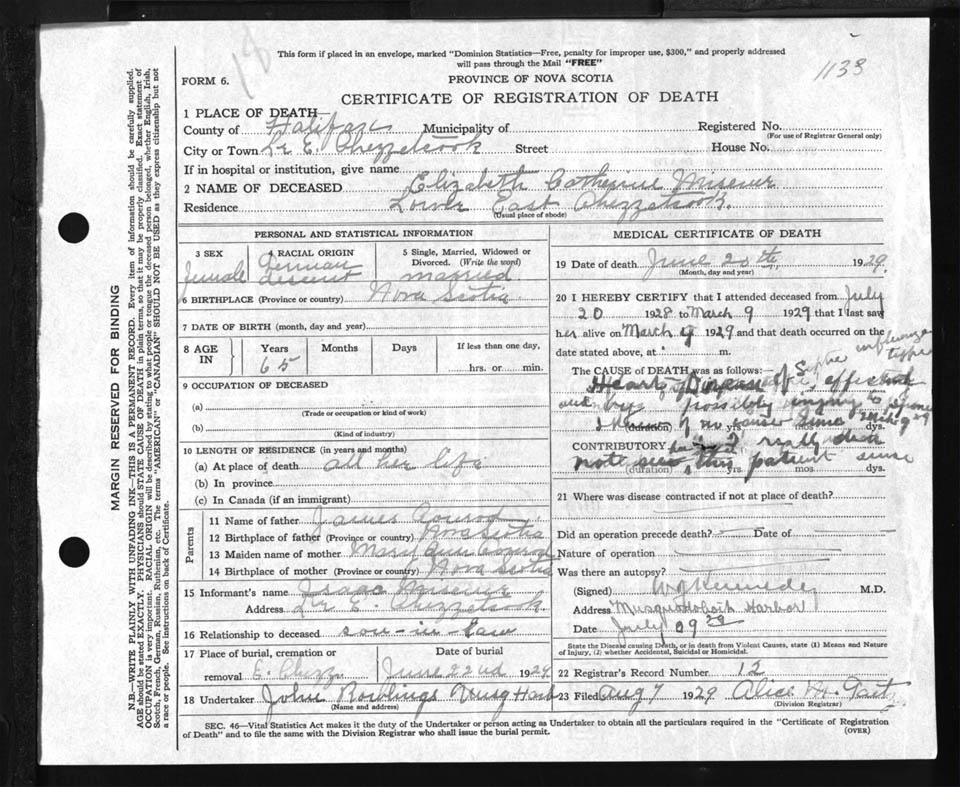 18
This form if placed in an envelope, marked "Dominion Statistics—Free, penalty for improper use, $300," and properly addressed
will pass through the Mail "FREE"
1133
FORM 6.
PROVINCE OF NOVA SCOTIA
CERTIFICATE OF REGISTRATION OF DEATH
1 PLACE OF DEATH
County of Halifax Municipality of Registered No.
(For use of Registrar General only)
City or Town Lr E. Chezzetcook Street House No.
If in hospital or institution, give name
2 NAME OF DECEASED Elizabeth Catherine Misener
Residence Lower East Chezzetcook.
(Usual place of abode)
PERSONAL AND STATISTICAL INFORMATION
3 SEX female
4 RACIAL ORIGIN German descent
5 Single, Married, Widowed or Divorced. (Write the word) married
6 BIRTHPLACE (Province or country) Nova Scotia
7 DATE OF BIRTH (month, day and year)
8 AGE IN Years 65 Months Days If less than one day, hrs. or min.
9 OCCUPATION OF DECEASED
(a)
(Trade or occupation or kind of work)
(b)
(Kind of industry)
10 LENGTH OF RESIDENCE (in years and months)
(a) At place of death all her life
(b) In province
(c) In Canada (if an immigrant)
Parents
11 Name of father James Conrod
12 Birthplace of father (Province or country) Nova Scotia
13 Maiden name of mother Mary Ann Conrod
14 Birthplace of mother (Province or country) Nova Scotia
15 Informant's name Isaac Misener
Address Lr E. Chezzetcook
16 Relationship to deceased son-in-law
17 Place of burial, cremation or removal E. Chezz Date of burial June 22nd 1929
18 Undertaker John Rowlings Musq Harb
(Name and address)
MEDICAL CERTIFICATE OF DEATH
19 Date of death June 20th 1929.
(Month, day and year)
20 I HEREBY CERTIFY that I attended deceased from July
20 1928 to March 9 1929 that I last saw
her alive on March 9 1929 and that death occurred on the
date stated above, at m.
The CAUSE OF DEATH was as follows:—
Heart Disease of influenza type
possibly injury to
(duration) yrs. mos. dys.
CONTRIBUTORY I really did
not see this patient since March 9 29
(duration) yrs. mos. dys.
21 Where was disease contracted if not at place of death?
Did an operation precede death? Date of
Nature of operation
Was there an autopsy?
(Signed) W J Kennedy M.D.
Address Musquodoboit Harbor
Date July 09 29
State the Disease causing Death, or in death from Violent Causes, state (1) Means and Nature of Injury, (2) whether Accidental, Suicidal or Homicidal.
22 Registrar's Record Number 12
23 Filed Aug 7 1929 Alice M.
(Division Registrar)
SEC. 46—Vital Statistics Act makes it the duty of the Undertaker or person acting as Undertaker to obtain all the particulars required in the "Certificate of Registration
of Death" and to file the same with the Division Registrar who shall issue the burial permit.
(OVER)
MARGIN RESERVED FOR BINDING
N.B.—WRITE PLAINLY WITH UNFADING INK—THIS IS A PERMANENT RECORD. Every item of information should be carefully supplied.
AGE should be stated EXACTLY. PHYSICIANS should STATE CAUSE OF DEATH in plain terms, so that it may be properly classified. Exact statement of
OCCUPATION is very important. RACIAL ORIGIN will be described by stating to what people or tongue the deceased person belonged, whether English, Irish,
Scotch, French, German, Russian, Ruthenian, etc. The terms "AMERICAN" or "CANADIAN" SHOULD NOT BE USED as they express citizenship but not
a race or people. See instructions on back of Certificate.